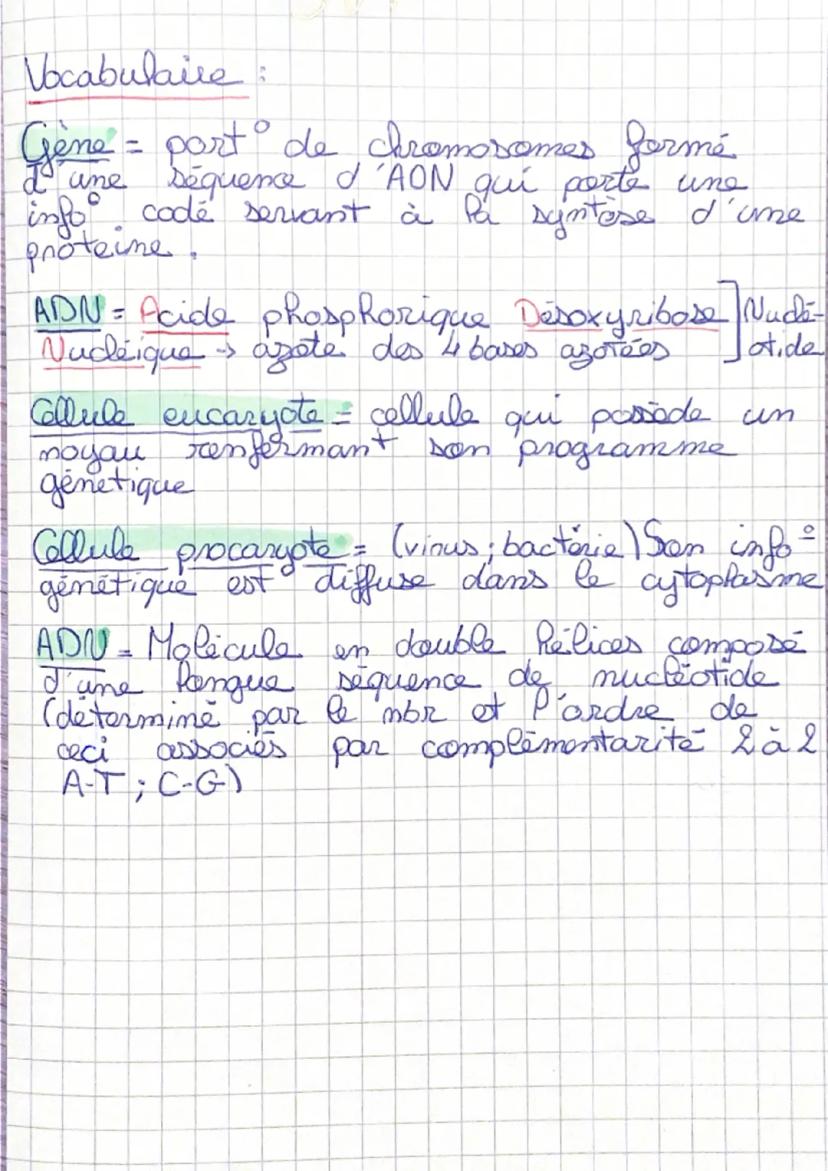 Vocabulaire :
Gène = port° de chromosomes formé
d'une séquence d'ADN qui porte une
info° codé servant à la syntèse d'une
proteine.
ADN = Acide phosphorique Désoxyribose ] Nuclé-
Nucléique -> azote des 4 bases azotées ] otide
Cellule eucaryote = cellule qui possède un
noyau renfermant son programme
génétique
Cellule procaryote = (virus ; bactérie) Son info°
génétique est diffuse dans le cytoplasme
ADN = Molécule en double hélices composé
d'une longue séquence de nucléotide
(déterminé par le nbr et l'ordre de
ceci associés par complémentarité 2 à 2
A-T ; C-G)